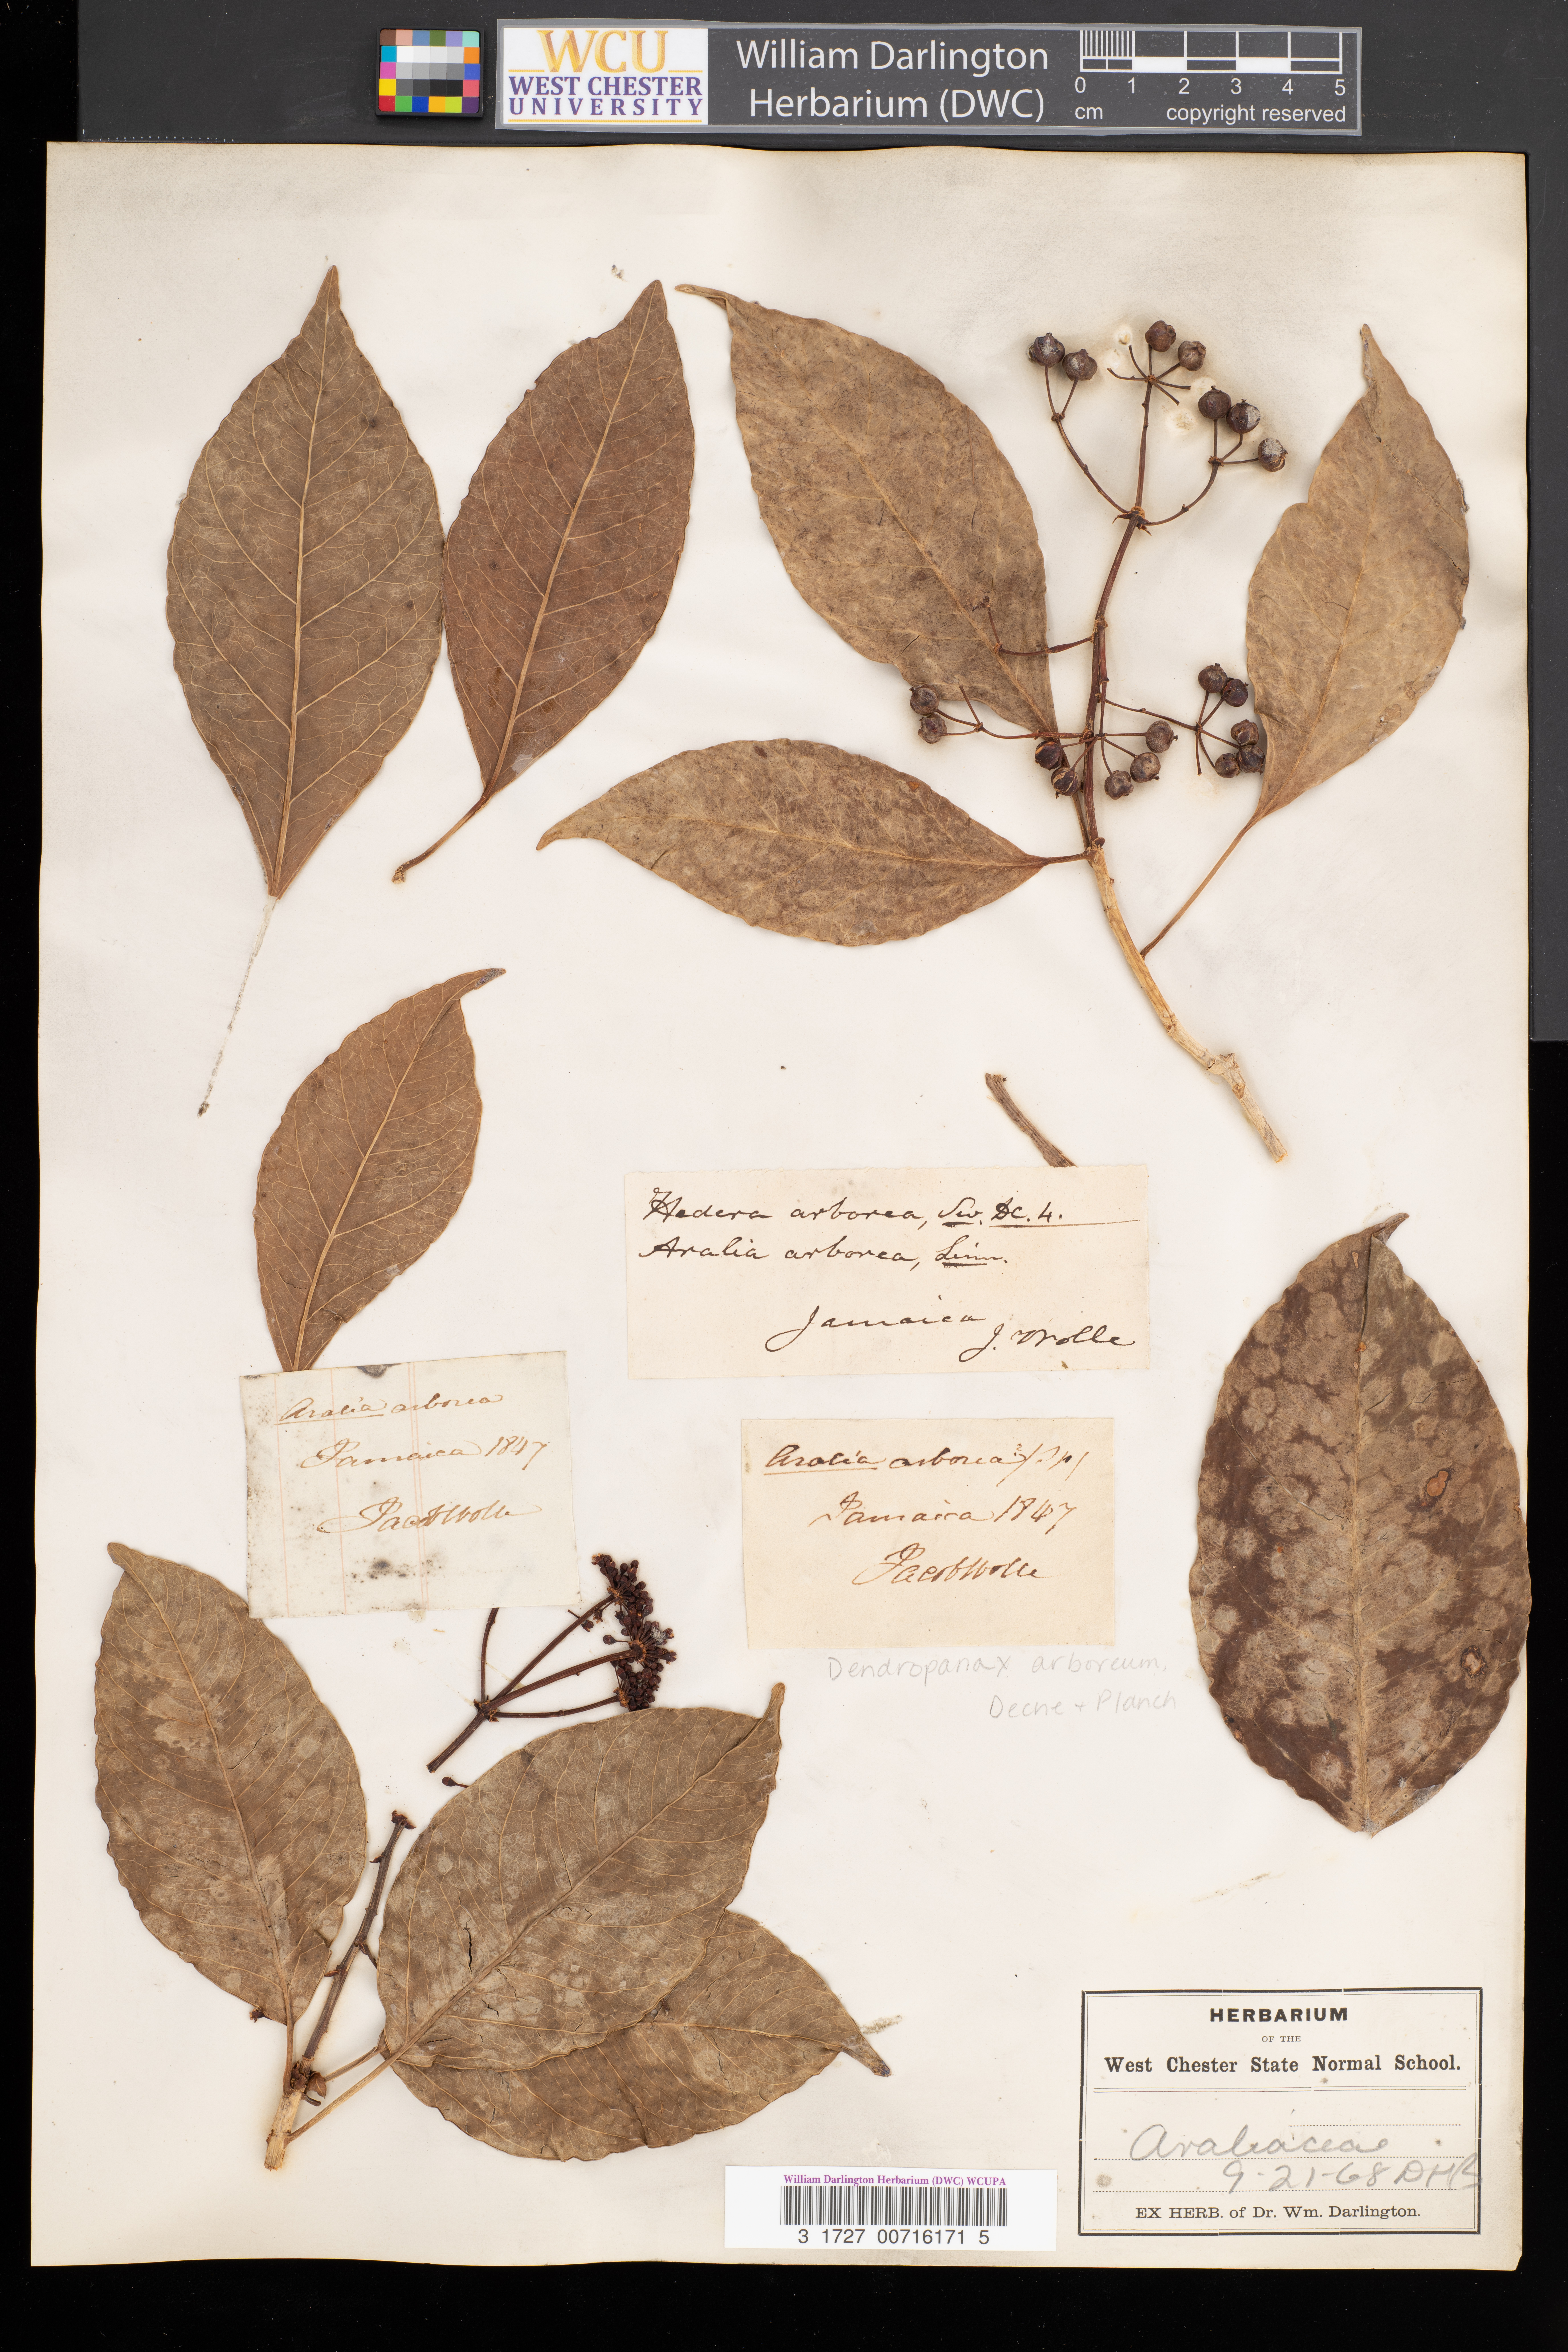 WCU
WEST CHESTER
UNIVERSITY
William Darlington
Herbarium (DWC)
0 1 2 3 4 5
cm
copyright reserved
Hedera arborea, Sw. DC. 4.
Aralia arborea, Linn.
Jamaica
J. Wolle
Aralia arborea
Jamaica 1847
Jacob Wolle
Aralia arborea
Jamaica 1847
Jacob Wolle
Dendropanax arboreum,
Decne + Planch
HERBARIUM
OF THE
West Chester State Normal School.
Araliaceae
9-21-68 DHB
EX HERB. of Dr. Wm. Darlington.
William Darlington Herbarium (DWC) WCUPA
3 1727 00716171 5